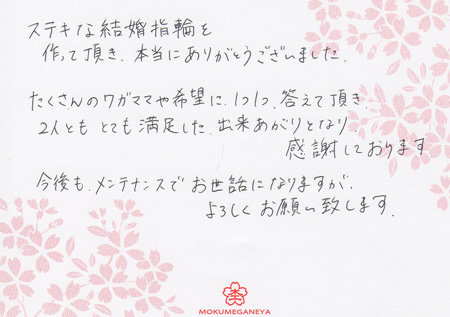 ステキな結婚指輪を
作って頂き、本当にありがとうございました。
たくさんのワガママや希望に、1つ1つ、答えて頂き
2人とも とても 満足した、出来あがりとなり、
感謝しております
今後も、メンテナンスで お世話になりますが、
よろしく お願い致します。
MOKUMEGANEYA